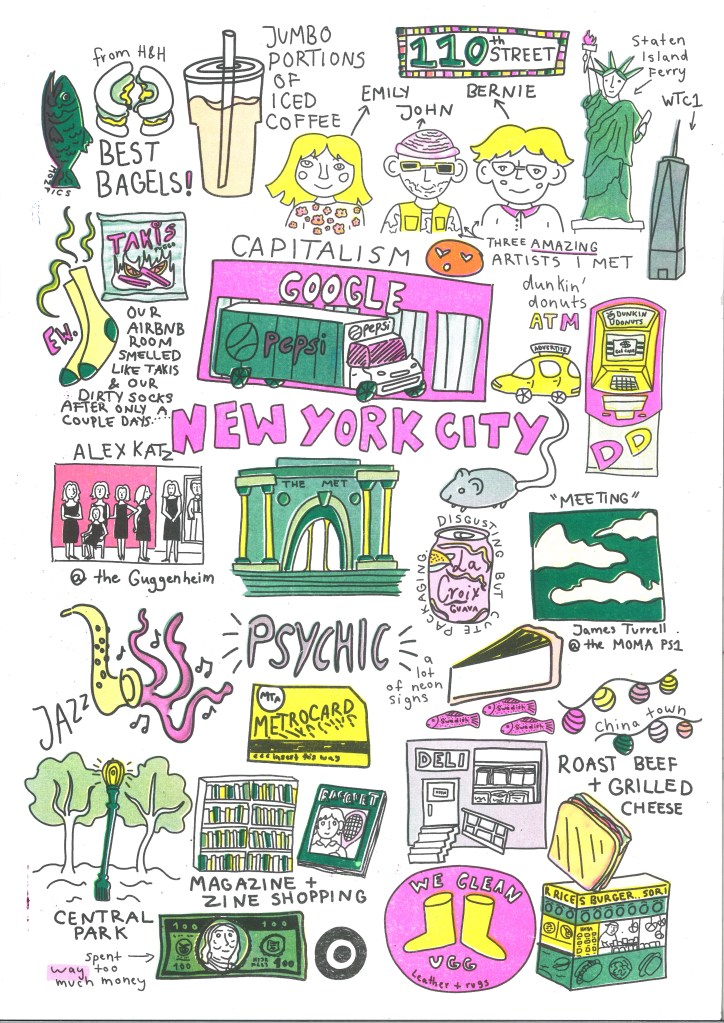 from H&H
BEST
BAGELS!
JUMBO
PORTIONS
OF
ICED
COFFEE
110th STREET
EMILY
JOHN
BERNIE
Staten
Island
Ferry
WTC1
THREE AMAZING
ARTISTS I MET
TAKIS
EW.
OUR
AIRBNB
ROOM
SMELLED
LIKE TAKIS
& OUR
DIRTY SOCKS
AFTER ONLY A
COUPLE DAYS...
CAPITALISM
GOOGLE
pepsi
pepsi
dunkin'
donuts
ATM
ADVERTISE
DUNKIN
DONUTS
DD
NEW YORK CITY
ALEX KATZ
@ the Guggenheim
THE MET
DISGUSTING BUT CUTE PACKAGING
La
Croix
GUAVA
"MEETING"
James Turrell
@ the MOMA PS1
JAZZ
PSYCHIC
a
lot
of neon
signs
MTA
METROCARD
insert this way
Swedish
Swedish
Swedish
China town
DELI
OPEN
ROAST BEEF
+ GRILLED
CHEESE
RACQUET
MAGAZINE +
ZINE SHOPPING
CENTRAL
PARK
spent
way too
much money
100
100
100
WE CLEAN
UGG
Leather + rugs
R RICE S BURGER.. SORI